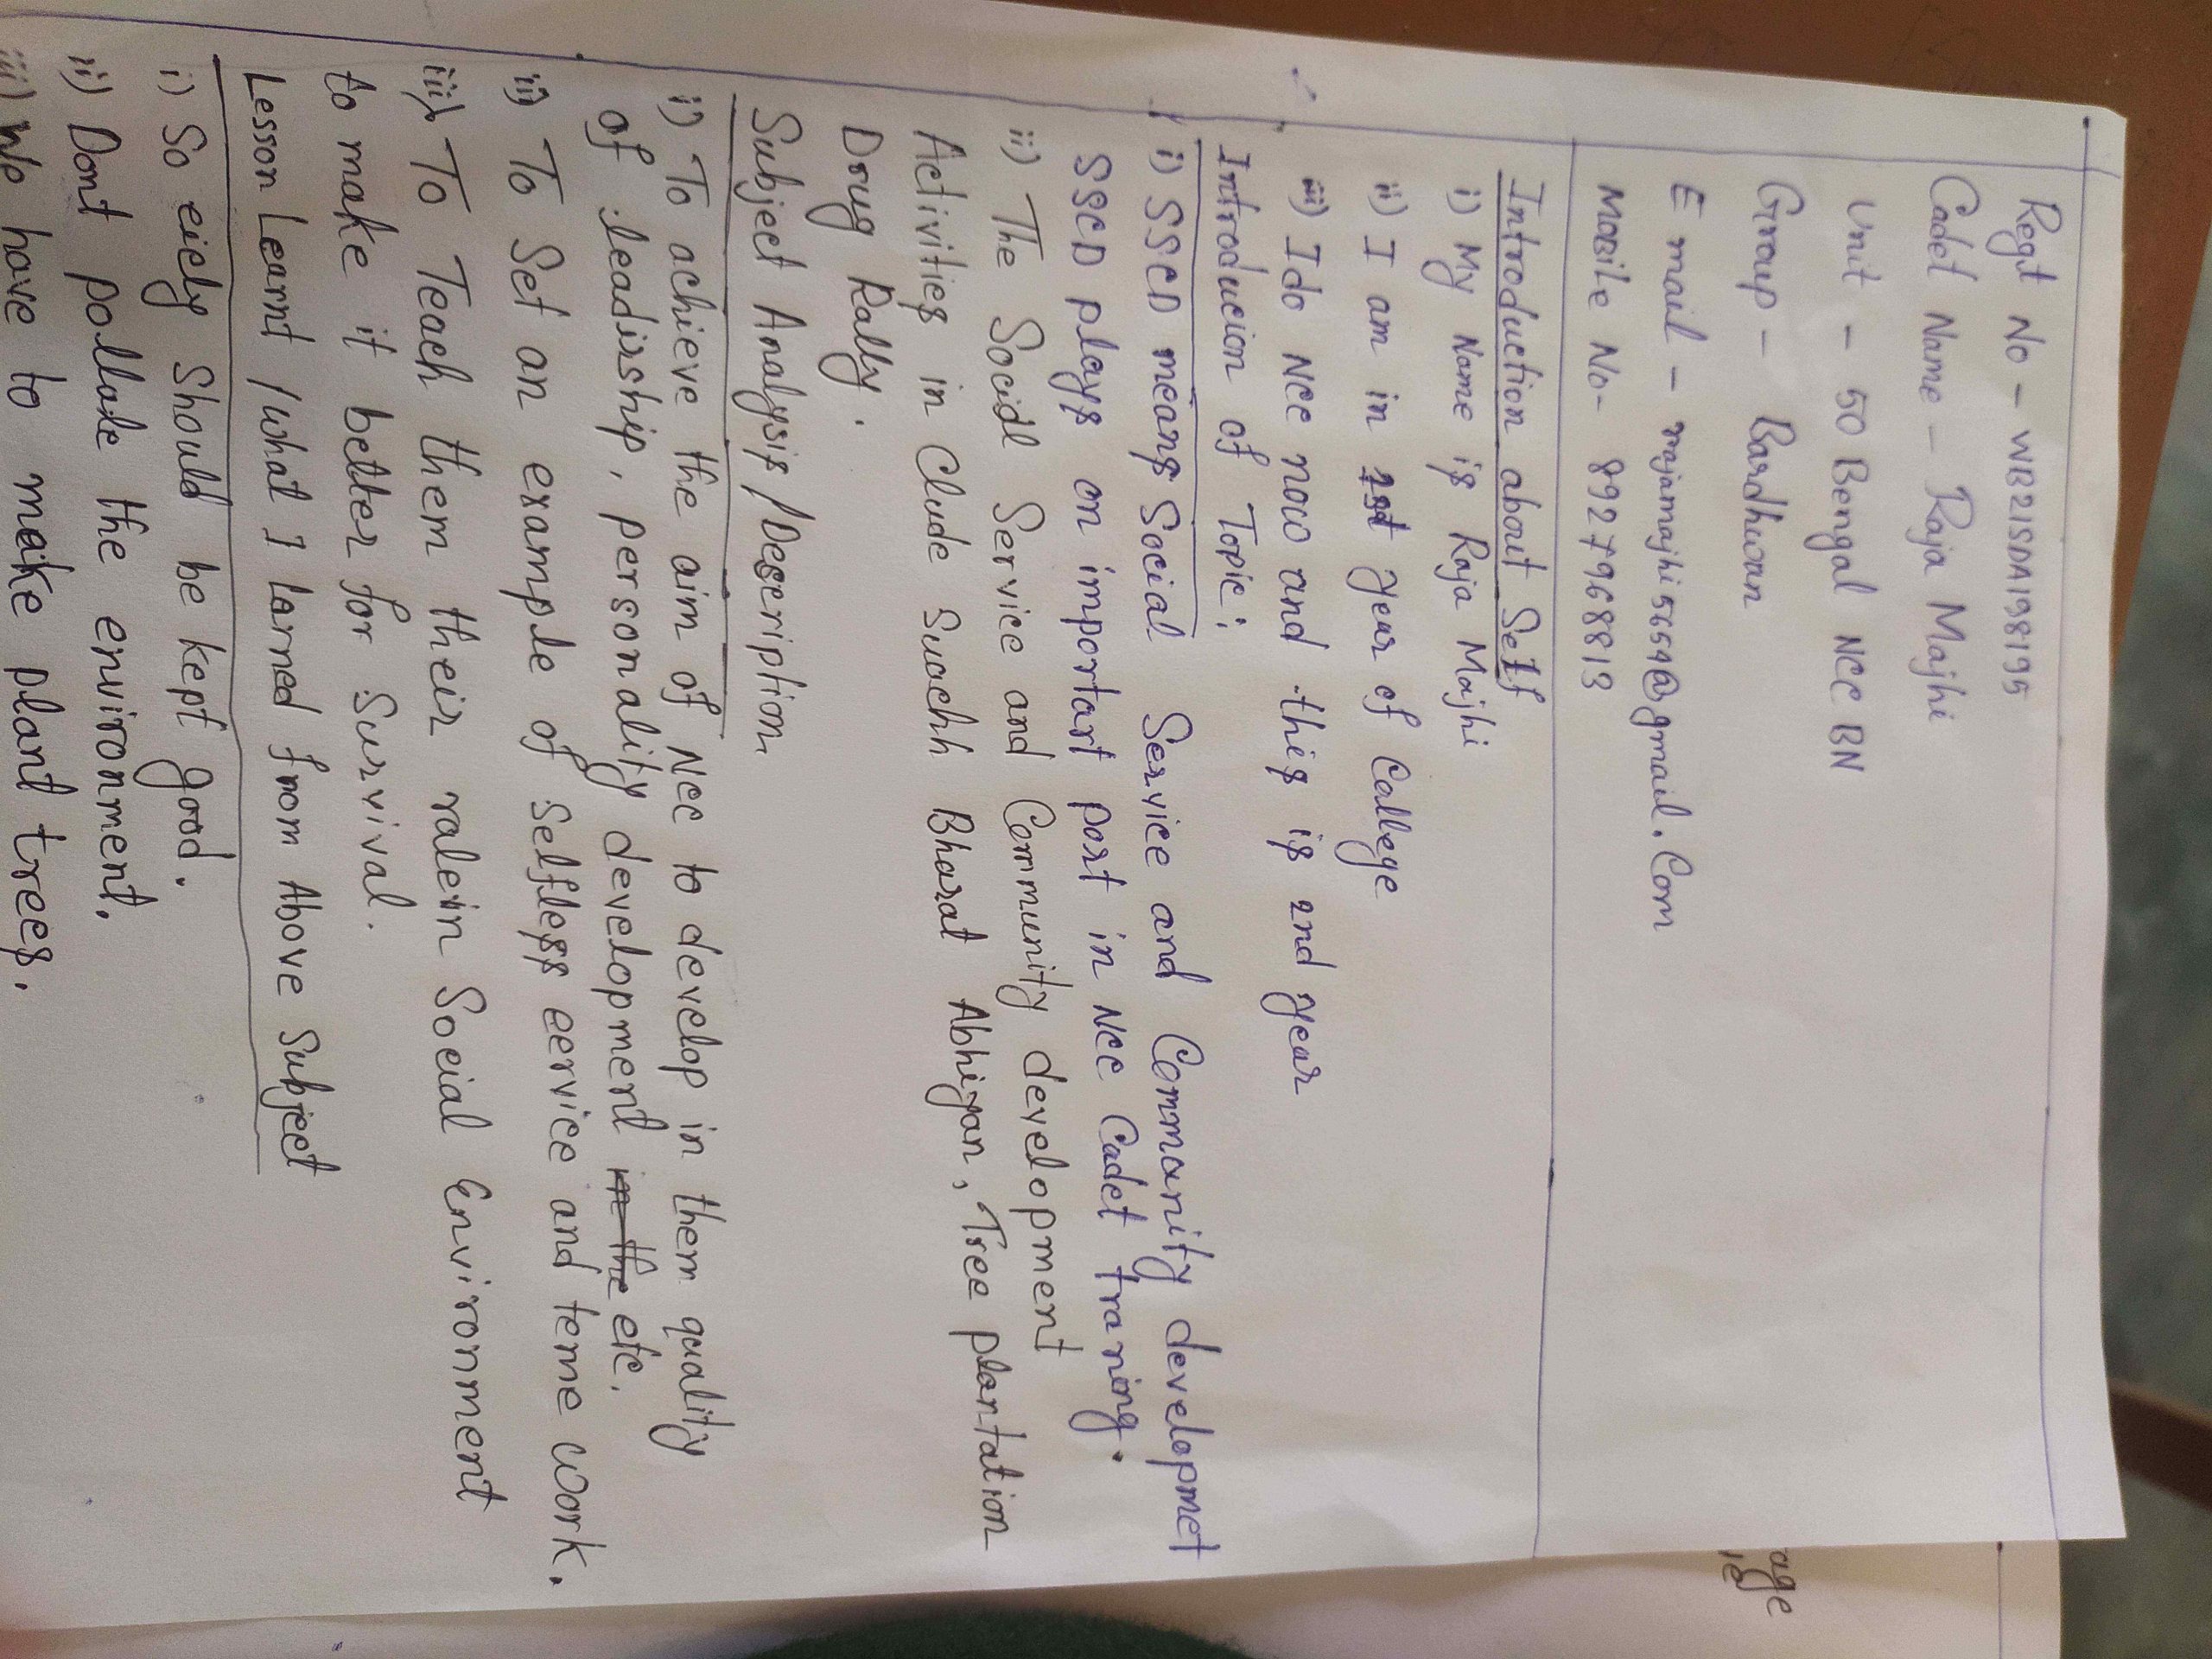 Regt No - WB21SDA198195
Cadet Name - Raja Majhi
Unit - 50 Bengal NCC BN
Group - Bardhwan
E mail - rajamajhi5654@gmail.Com
Mobile No- 8927968813
Introduction about Self
i) My Name is Raja Majhi
ii) I am in 1st year of College
iii) I do NCC now and this is 2nd year
Introducion of Topic:
i) SSCD means Social Service and Commonity developmet
SSCD plays an important part in NCC Cadet traning.
ii) The Social Service and Community development
Activities in Clude Suachh Bharat Abhiyan, Tree plantation
Drug Rally.
Subject Analysis/Description.
i) To achieve the aim of NCC to develop in them quality
of leadirship, personality development in the etc.
ii) To Set an example of selfless service and teme work.
iii) To Teach them their rolein Social Environment
to make it better for Survival.
Lesson Learnt /what I larned from Above Subject
i) So eiely Should be kept good.
ii) Dont pollute the environment.
iii) We have to make plant trees.
age